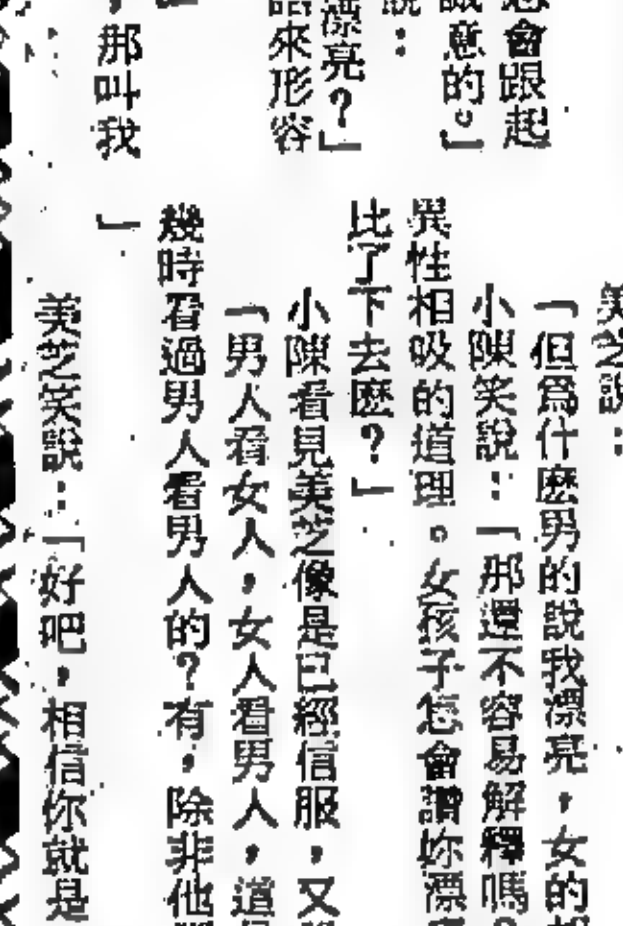 怎會跟起
誠意的。」
說：
漂亮？」
話來形容
，那叫我
笑說：
「但爲什麽男的說我漂亮，女的
小陳笑說：「那還不容易解釋嗎
異性相吸的道理。女孩子怎會讚妳漂
比了下去麽？」
小陳看見美芝像是已經信服，又
「男人看女人，女人看男人，道
幾時看過男人看男人的？有，除非他
」
美芝笑說：「好吧，相信你就是